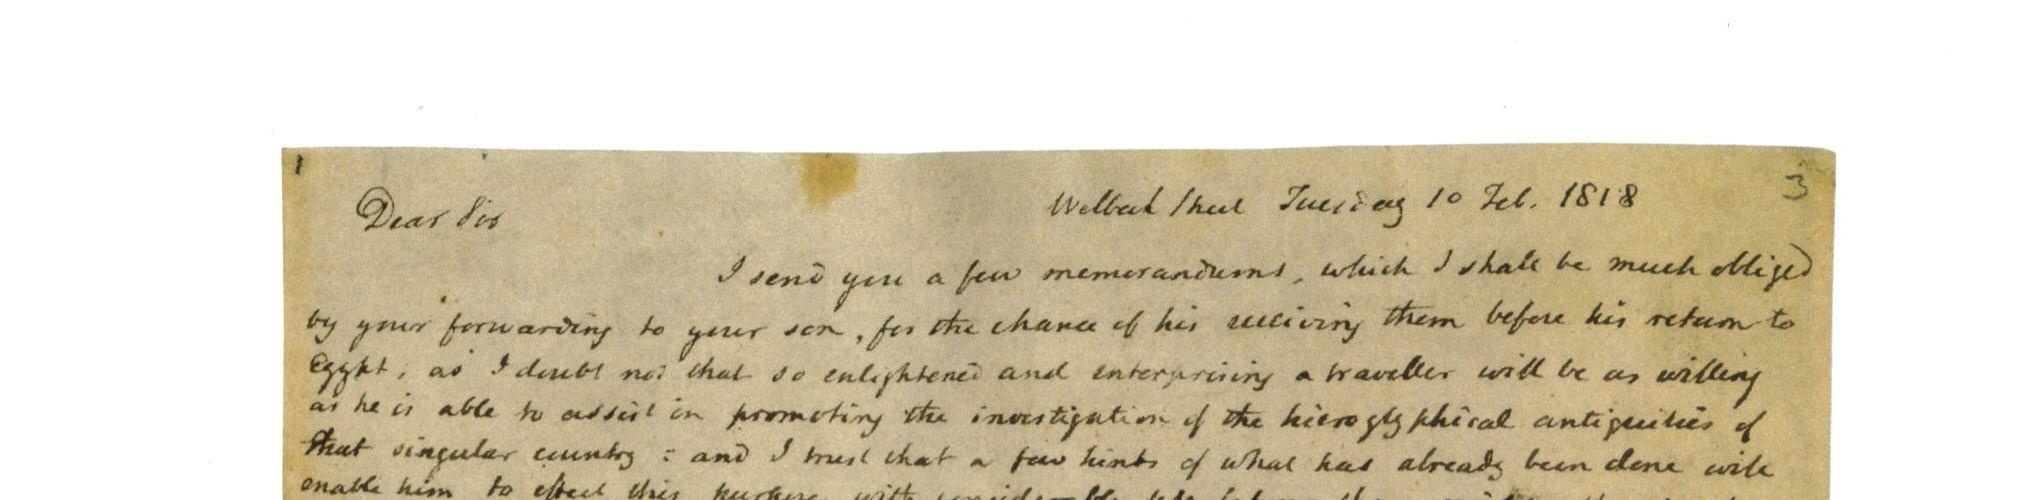 3
Dear Sir
Welbeck Street Tuesday 10 Feb. 1818
I send you a few memorandums, which I shall be much obliged
by your forwarding to your son, for the chance of his receiving them before his return to
Egypt; as I doubt not that so enlightened and enterprising a traveller will be as willing
as he is able to assist in promoting the investigation of the hieroglyphical antiquities of
that singular country: and I trust that a few hints of what has already been done will
enable him to effect this purpose with considerably